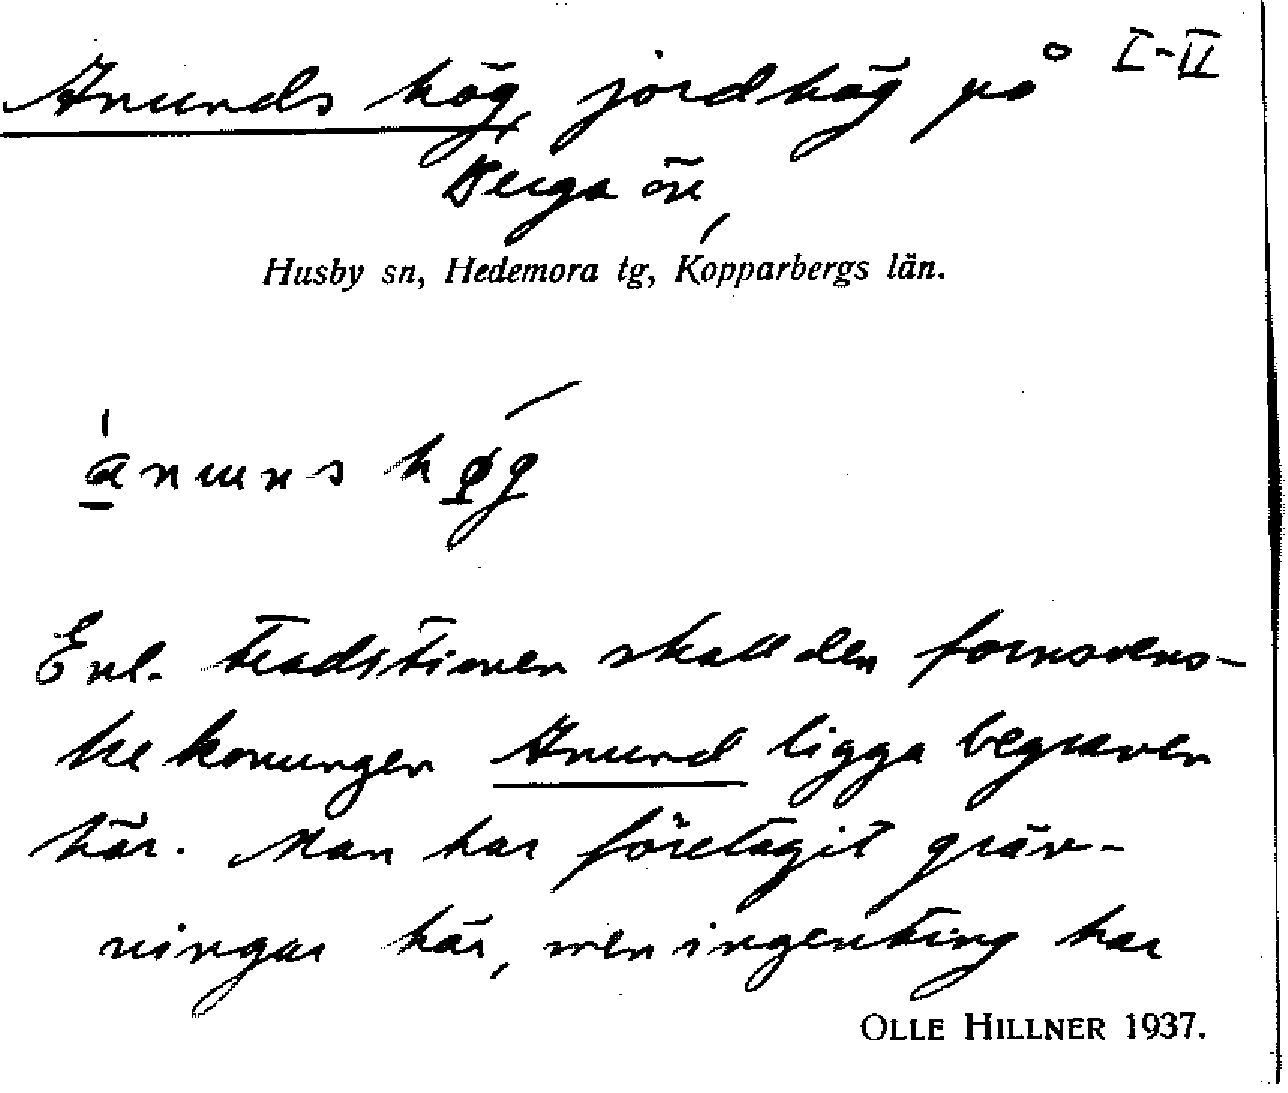 I-II
Anunds hög, jordhög på
Berga
Husby sn, Hedemora tg, Kopparbergs län.
ánuns høg
Enl. traditionen skall den fornsvens-
ke konungen Anund ligga begraven
här. Man har företagit gräv-
ningar här, men ingenting har
OLLE HILLNER 1937.